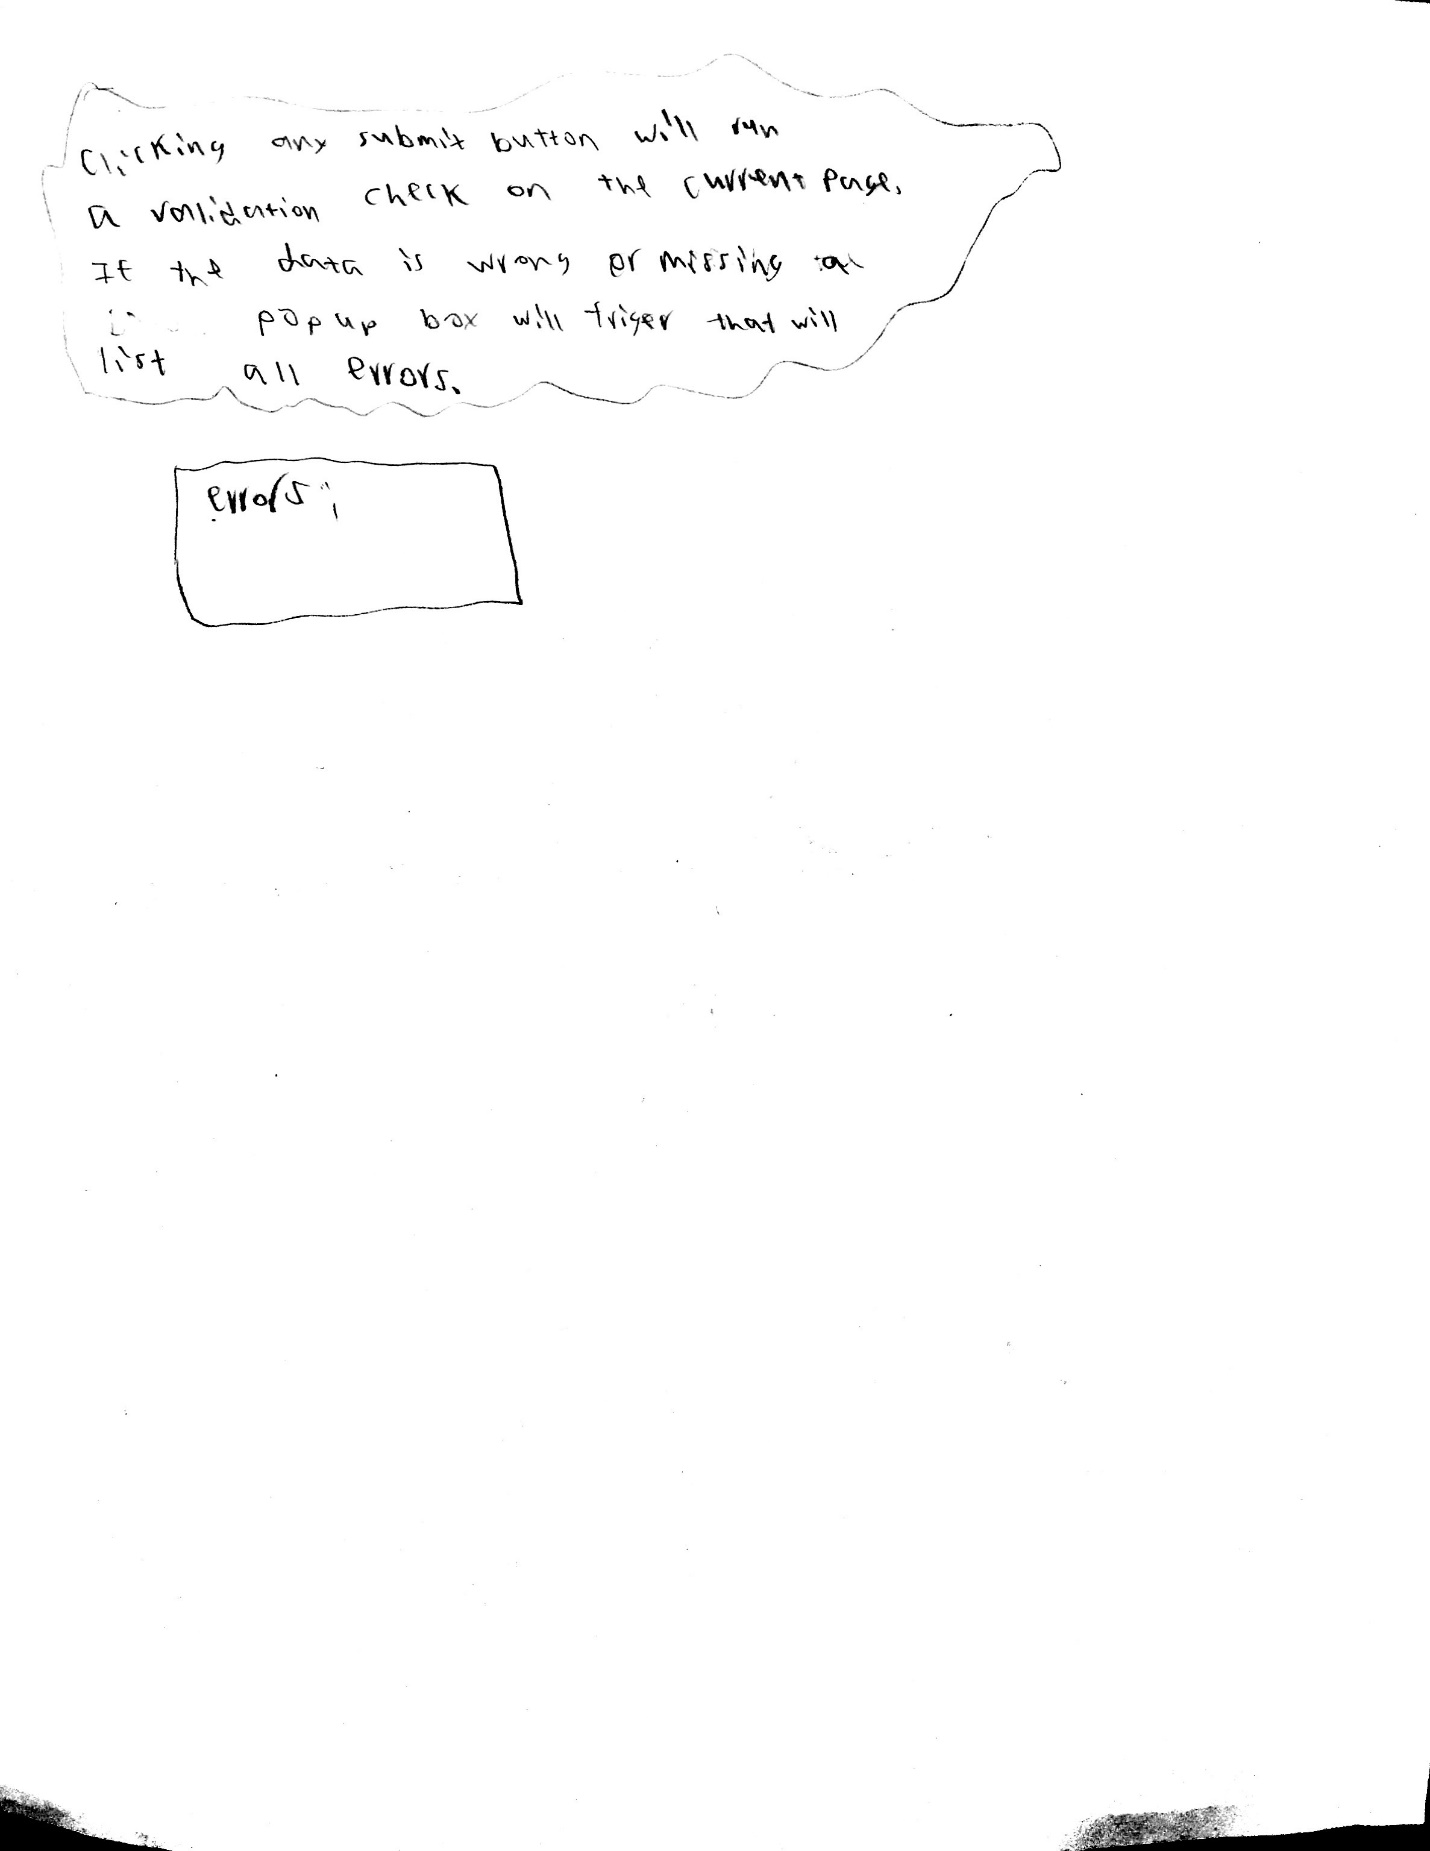 Clicking any submit button will run
a validation check on the current page.
If the data is wrong or missing a
popup box will triger that will
list all errors.
errors: